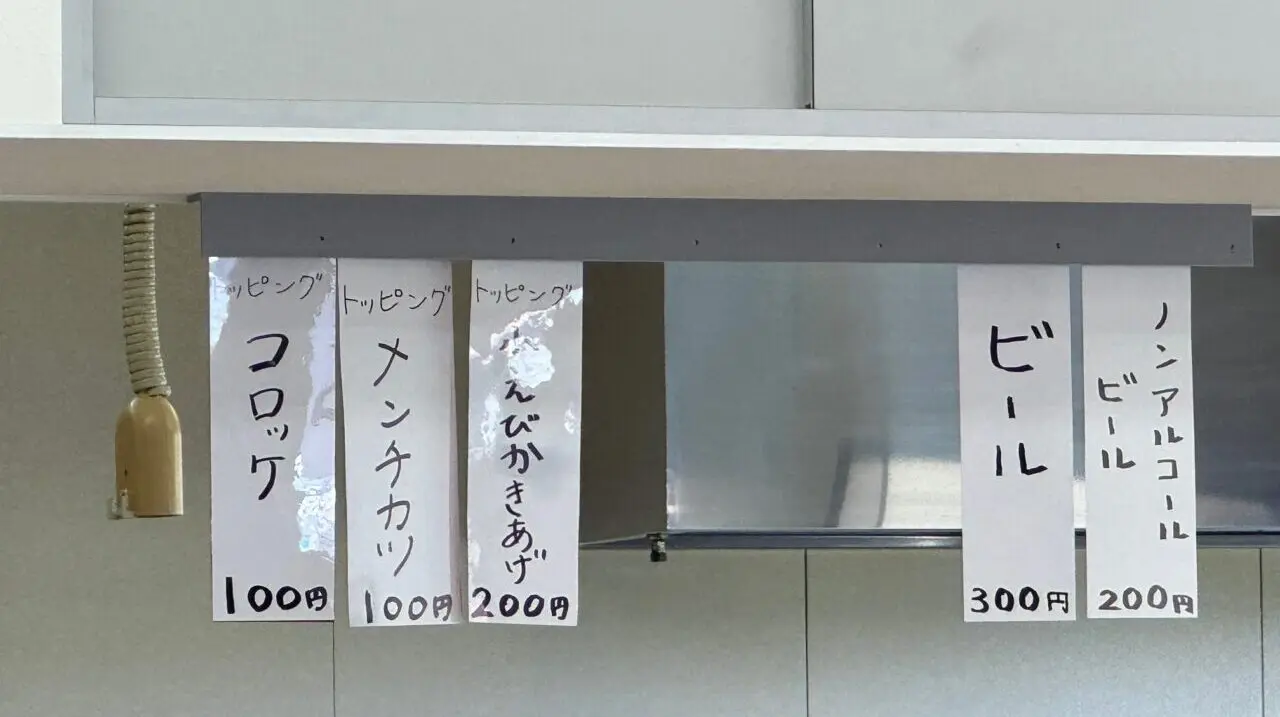 トッピング
コロッケ
100円
トッピング
メンチカツ
100円
トッピング
小えびかきあげ
200円
ビール
300円
ノンアルコール
ビール
200円